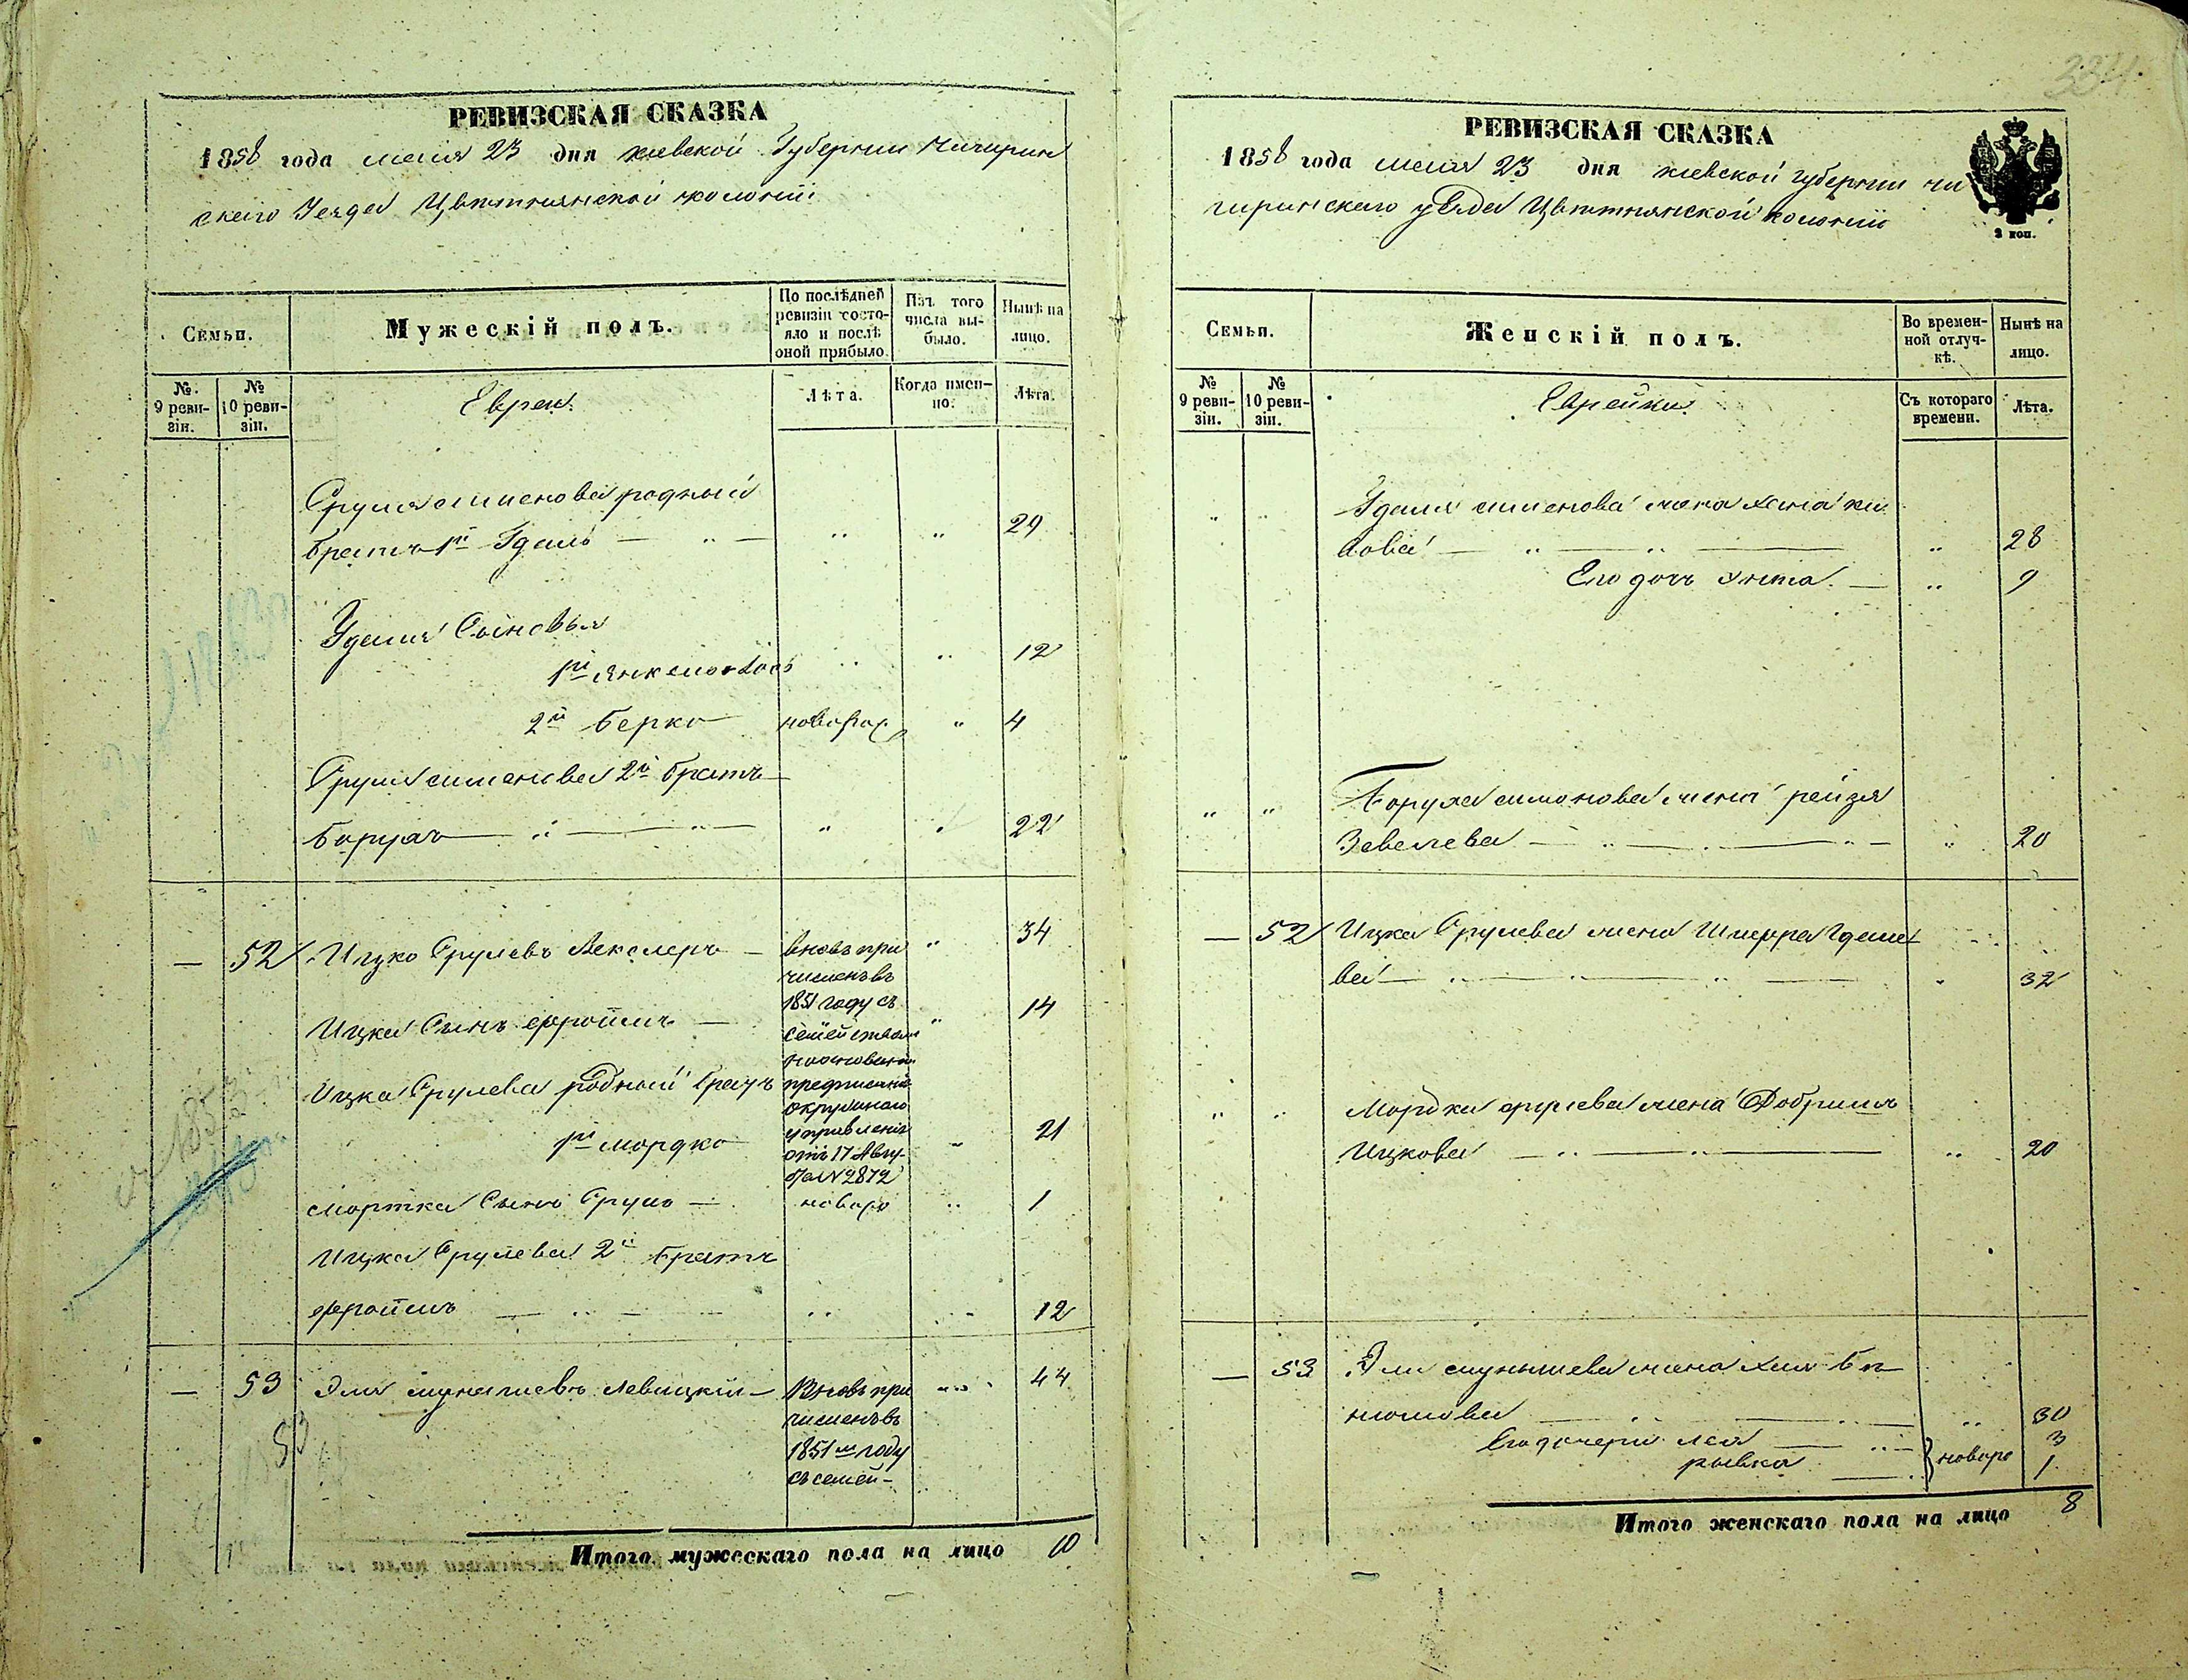 334.
РЕВИЗСКАЯ СКАЗКА
1858 года мая 23 дня киевской Губернии Чигирин
скаго Уезда Цветнянской колонии
Семьи.
Мужескій полъ.
По послѣдней ревизіи состояло и послѣ оной прибыло.
Изъ того числа выбыло.
Нынѣ на лицо.
№ 9 ревизіи.
№ 10 ревизіи.
Евреи.
Лѣта.
Когда именно.
Лѣта.
Сруля Симонова родный
братъ 1й Удель — „ — „ „ 29
Уделя Сыновья
1й Янкель 12
2й Берко новорож „ 4
Сруля Симонова 2й братъ
Борухъ „ „ 22
— 52 Ицко Срулевъ Векслеръ — вновь при „ 34
численъ въ
1851 году съ
Ицка Сынъ Фроимъ — семействомъ „ 14
Ицка Срулева родный братъ предписанія
окружнаго
1й Мордко управленія „ 21
отъ 17 Авгу-
ста N 2872
Мортка Сынъ Сруль — новоро „ 1
Ицка Срулева 2й братъ
Фроимъ „ „ 12
— 53 Эля Левицкій — Вновь при „ 44
численъ въ
1851м году
съ семей-
53
Итого мужескаго пола на лицо 10
РЕВИЗСКАЯ СКАЗКА
1858 года мая 23 дня киевской губернии чи
гиринскаго уезда Цветнянской колонии
2 коп.
Семьи.
Женскій полъ.
Во временной отлучкѣ.
Нынѣ на лицо.
№ 9 ревизіи.
№ 10 ревизіи.
Еврейки.
Съ котораго времени.
Лѣта.
„ „ Уделя Симонова жена
„ 28
Его дочь „ 9
„ „ Боруха Симонова жена Рейзя
Завелева „ 20
— 52 Ицка Срулева жена Шифра Уделе
ва „ 32
„ „ Мордка Срулева жена Добришъ
Ицкова „ 20
— 53 Эли жена Хая Бе
„ 30
Его дочери Лея новоро 3
Рывка 1
Итого женскаго пола на лицо 8